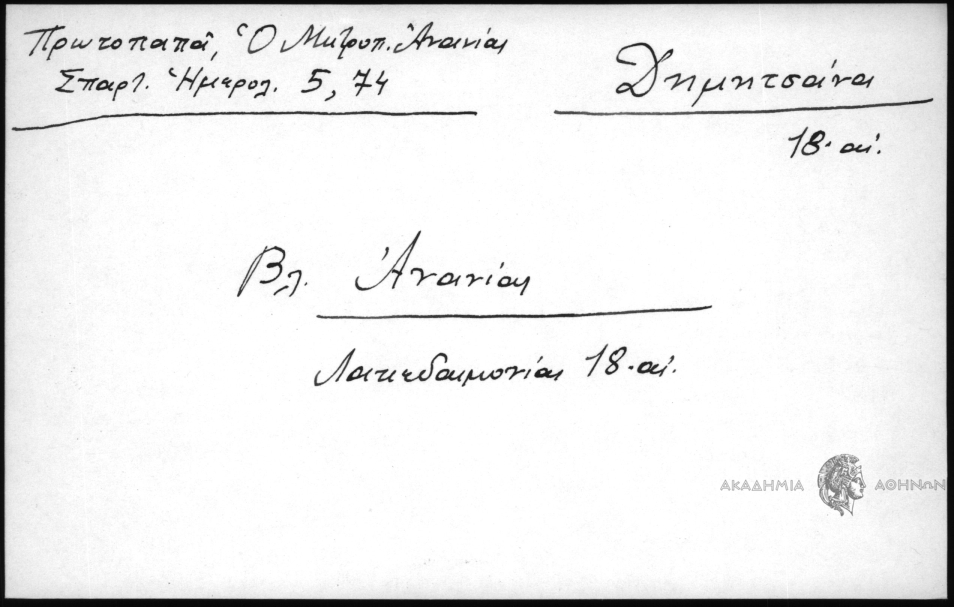 Πρωτοπαπᾶ, Ὁ Μητροπ. Ἀνανίας
Σπαρτ. Ἡμερολ. 5, 74
Δημητσάνα
18. αἰ.
Βλ. Ἀνανίας
Λακεδαιμονίας 18. αἰ.
ΑΚΑΔΗΜΙΑ ΑΘΗΝΩΝ